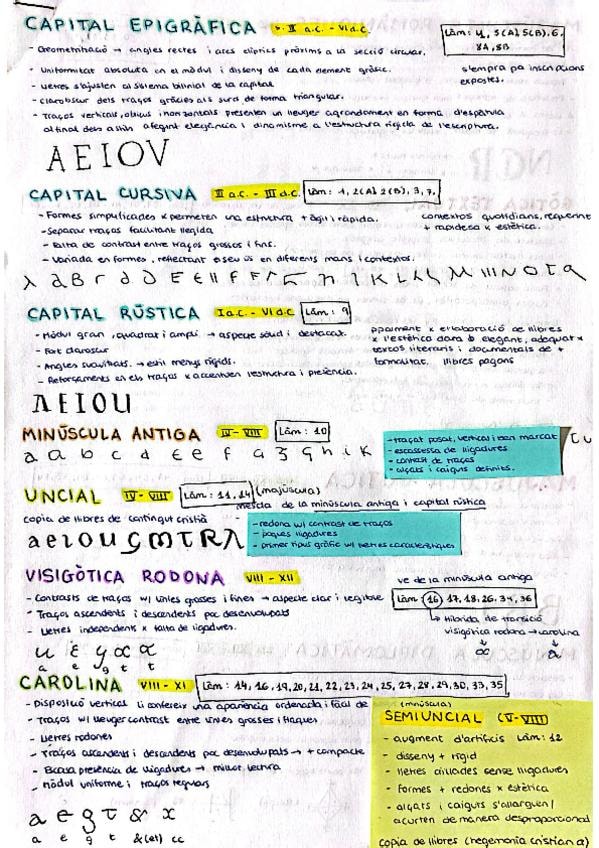 CAPITAL EPIGRÀFICA > II a.C. - VI d.C.
Làm: 4, 5(A), 5(B), 6,
8A, 8B
- Geometrització → angles rectes i arcs el·líptics pròxims a la secció circular.
- Uniformitat absoluta en el mòdul i disseny de cada element gràfic.
sempre pa inscripcions
expostes.
- Lletres s'ajusten al sistema bilinial de la capital
- Clarobscur dels traços gràcies als surd de forma triangular.
- Traços verticals, oblicus i horizontals presenten un lleuger agrandament en forma d'espàtula
al final dels astils afegint elegància i dinamisme a l'estructura rígida de l'escriptura.
A E I O V
CAPITAL CURSIVA II a.C. - III d.C. Làm: 1, 2(A) 2(B), 3, 7,
- Formes simplificades x permeten una estructura + àgil i ràpida.
contextos quotidians, requerint
+ rapidesa x estètica.
- Separar traços facilitant llegida
- Falta de contrast entre traços grossos i fins.
- Variada en formes, reflectant o seu ús en diferents mans i contextos.
CAPITAL RÚSTICA I a.C. - VI d.C Làm: 9
- Mòdul gran, quadrat i ampli → aspecte sòlid i destacat.
- Fort clarobscur
- Angles suavitzats → estil menys rígids.
- Reforçaments en els traços x accentuen l'estructura i presència.
ppalment x elaboració de llibres
x l'estètica clara & elegant, adequat x
textos literaris i documentals de +
formalitat. llibres pagans
A E I O U
MINÚSCULA ANTIGA IV - VIII Làm: 10
a a b c d ε e f g h i k
- traçat posat, vertical i ben marcat
- escassessa de lligadures
- contrast de traços
- alçats i caiguts definits.
UNCIAL IV - VIII Làm: 11, 14 (majúscula)
mescla de la minúscula antiga i capital rústica
copia de llibres de contingut cristià
- redona w/ contrast de traços
- poques lligadures
- primer tipus gràfic w/ lletres característiques
a e i o u G M T R
VISIGÒTICA RODONA VIII - XII
ve de la minúscula antiga
- Contrasts de traços w/ línies grosses i fines → aspecte clar i legible
Làm: 16, 17, 18, 26, 34, 36
- Traços ascendents i descendents poc desenvolupats
- Lletres independents x falta de lligadures.
↳ híbrida de transició
visigòtica rodona → carolina
a e g t t
CAROLINA VIII - XI Làm: 14, 16, 19, 20, 21, 22, 23, 24, 25, 27, 28, 29, 30, 33, 35
- Disposició vertical li confereix una aparència ordenada i fàcil de
- Traços w/ lleuger contrast entre línies grosses i flaques
- Lletres rodones
- Traços ascendents i descendents poc desenvolupats → + compacte
- Escasa presència de lligadures → millor lectura
- Mòdul uniforme i traços regulars
a e g t & x
a e g t &(et) cc
(minúscula)
SEMIUNCIAL (V - VIII)
- augment d'artificis Làm: 12
- disseny + rígid
- lletres aïllades sense lligadures
- formes + redones x estètica
- alçats i caiguts s'allarguen/
acurten de manera desproporcional
copia de llibres (hegemonia cristiana)